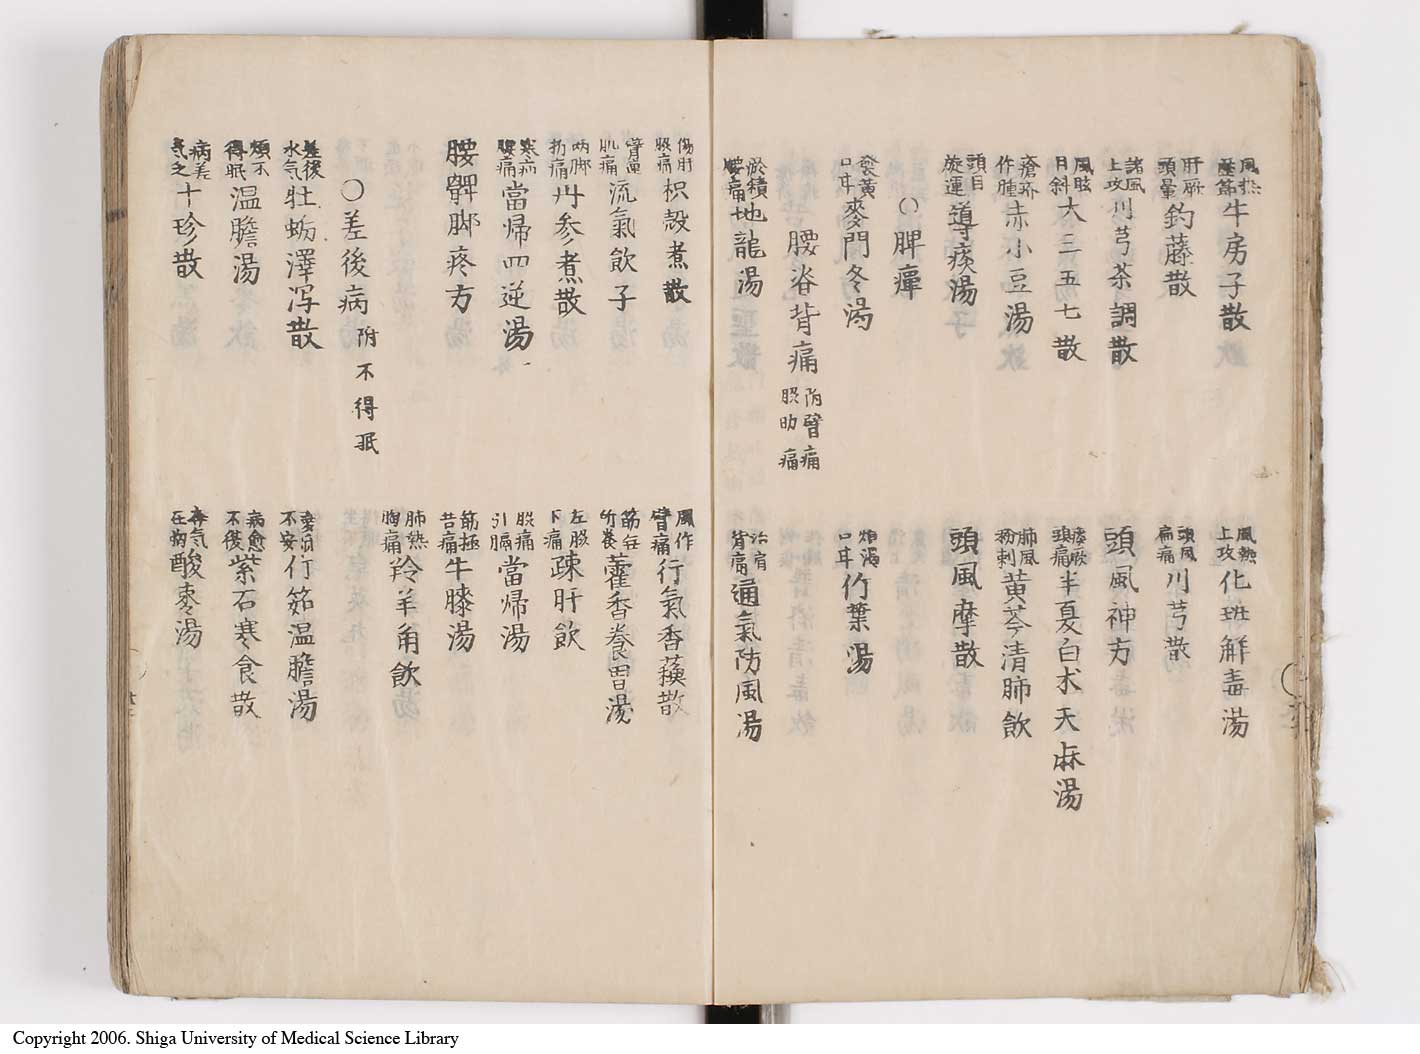 風熱 牛房子散
風熱上攻 化斑解毒湯
肝厥頭暈 釣藤散
頭風偏痛 川芎散
諸風上攻 川芎茶調散
頭風神方
風眩目斜 大三五七散
痰厥頭痛 半夏白朮天麻湯
瘡疥作腫 赤小豆湯
肺風粉刺 黄芩清肺飲
頭目旋運 導痰湯
頭風摩散
○脾癉
發黄口甘 麥門冬湯
煩渇口甘 竹葉湯
腰脊背痛 附臂痛股肋痛
淤積腰痛 地龍湯
治肩背痛 通氣防風湯
傷肝股痛 枳殼煮散
風作臂痛 行氣香蘓散
臂 肌痛 流氣飲子
藿香養胃湯
丹参煮散
左股下痛 疎肝飲
寒疝腰痛 當帰四逆湯
股痛引膈 當帰湯
腰髀脚疼方
筋極苦痛 牛膝湯
肺熱胸痛 羚羊角飲
○差後病 附不得眠
差後水气 牡蛎澤泻散
不安 竹筎温膽湯
煩不得眠 温膽湯
病愈不復 紫石寒食散
病差 十珍散
在胸 酸棗湯
Copyright 2006. Shiga University of Medical Science Library